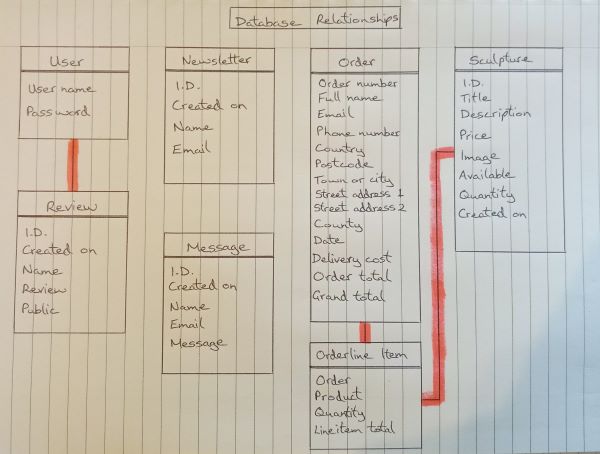 Database Relationships
User
User name
Password
Review
I.D.
Created on
Name
Review
Public
Newsletter
I.D.
Created on
Name
Email
Message
I.D.
Created on
Name
Email
Message
Order
Order number
Full name
Email
Phone number
Country
Postcode
Town or city
Street address 1
Street address 2
County
Date
Delivery cost
Order total
Grand total
Orderline Item
Order
Product
Quantity
Lineitem total
Sculpture
I.D.
Title
Description
Price
Image
Available
Quantity
Created on